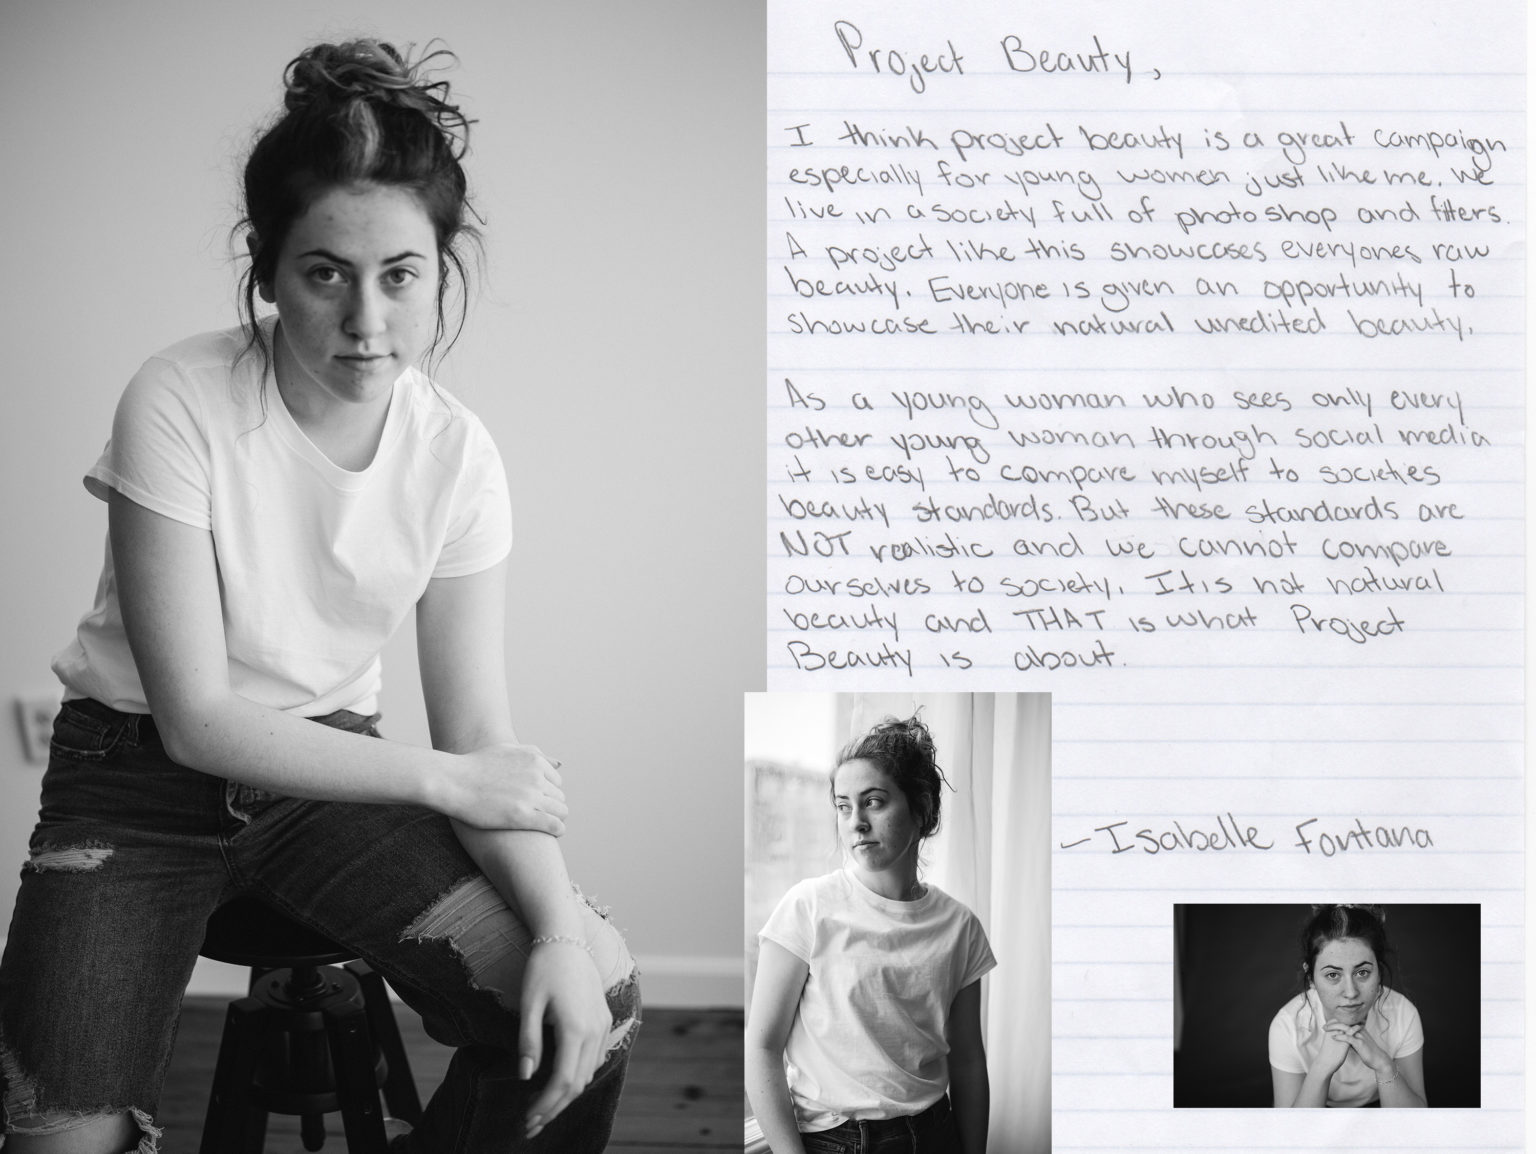 Project Beauty,
I think project beauty is a great campaign
especially for young women just like me. We
live in a society full of photoshop and filters.
A project like this showcases everyones raw
beauty. Everyone is given an opportunity to
showcase their natural unedited beauty.
As a young woman who sees only every
other young woman through social media
it is easy to compare myself to societies
beauty standards. But these standards are
NOT realistic and we cannot compare
ourselves to society. It is not natural
beauty and THAT is what Project
Beauty is about.
- Isabelle Fontana